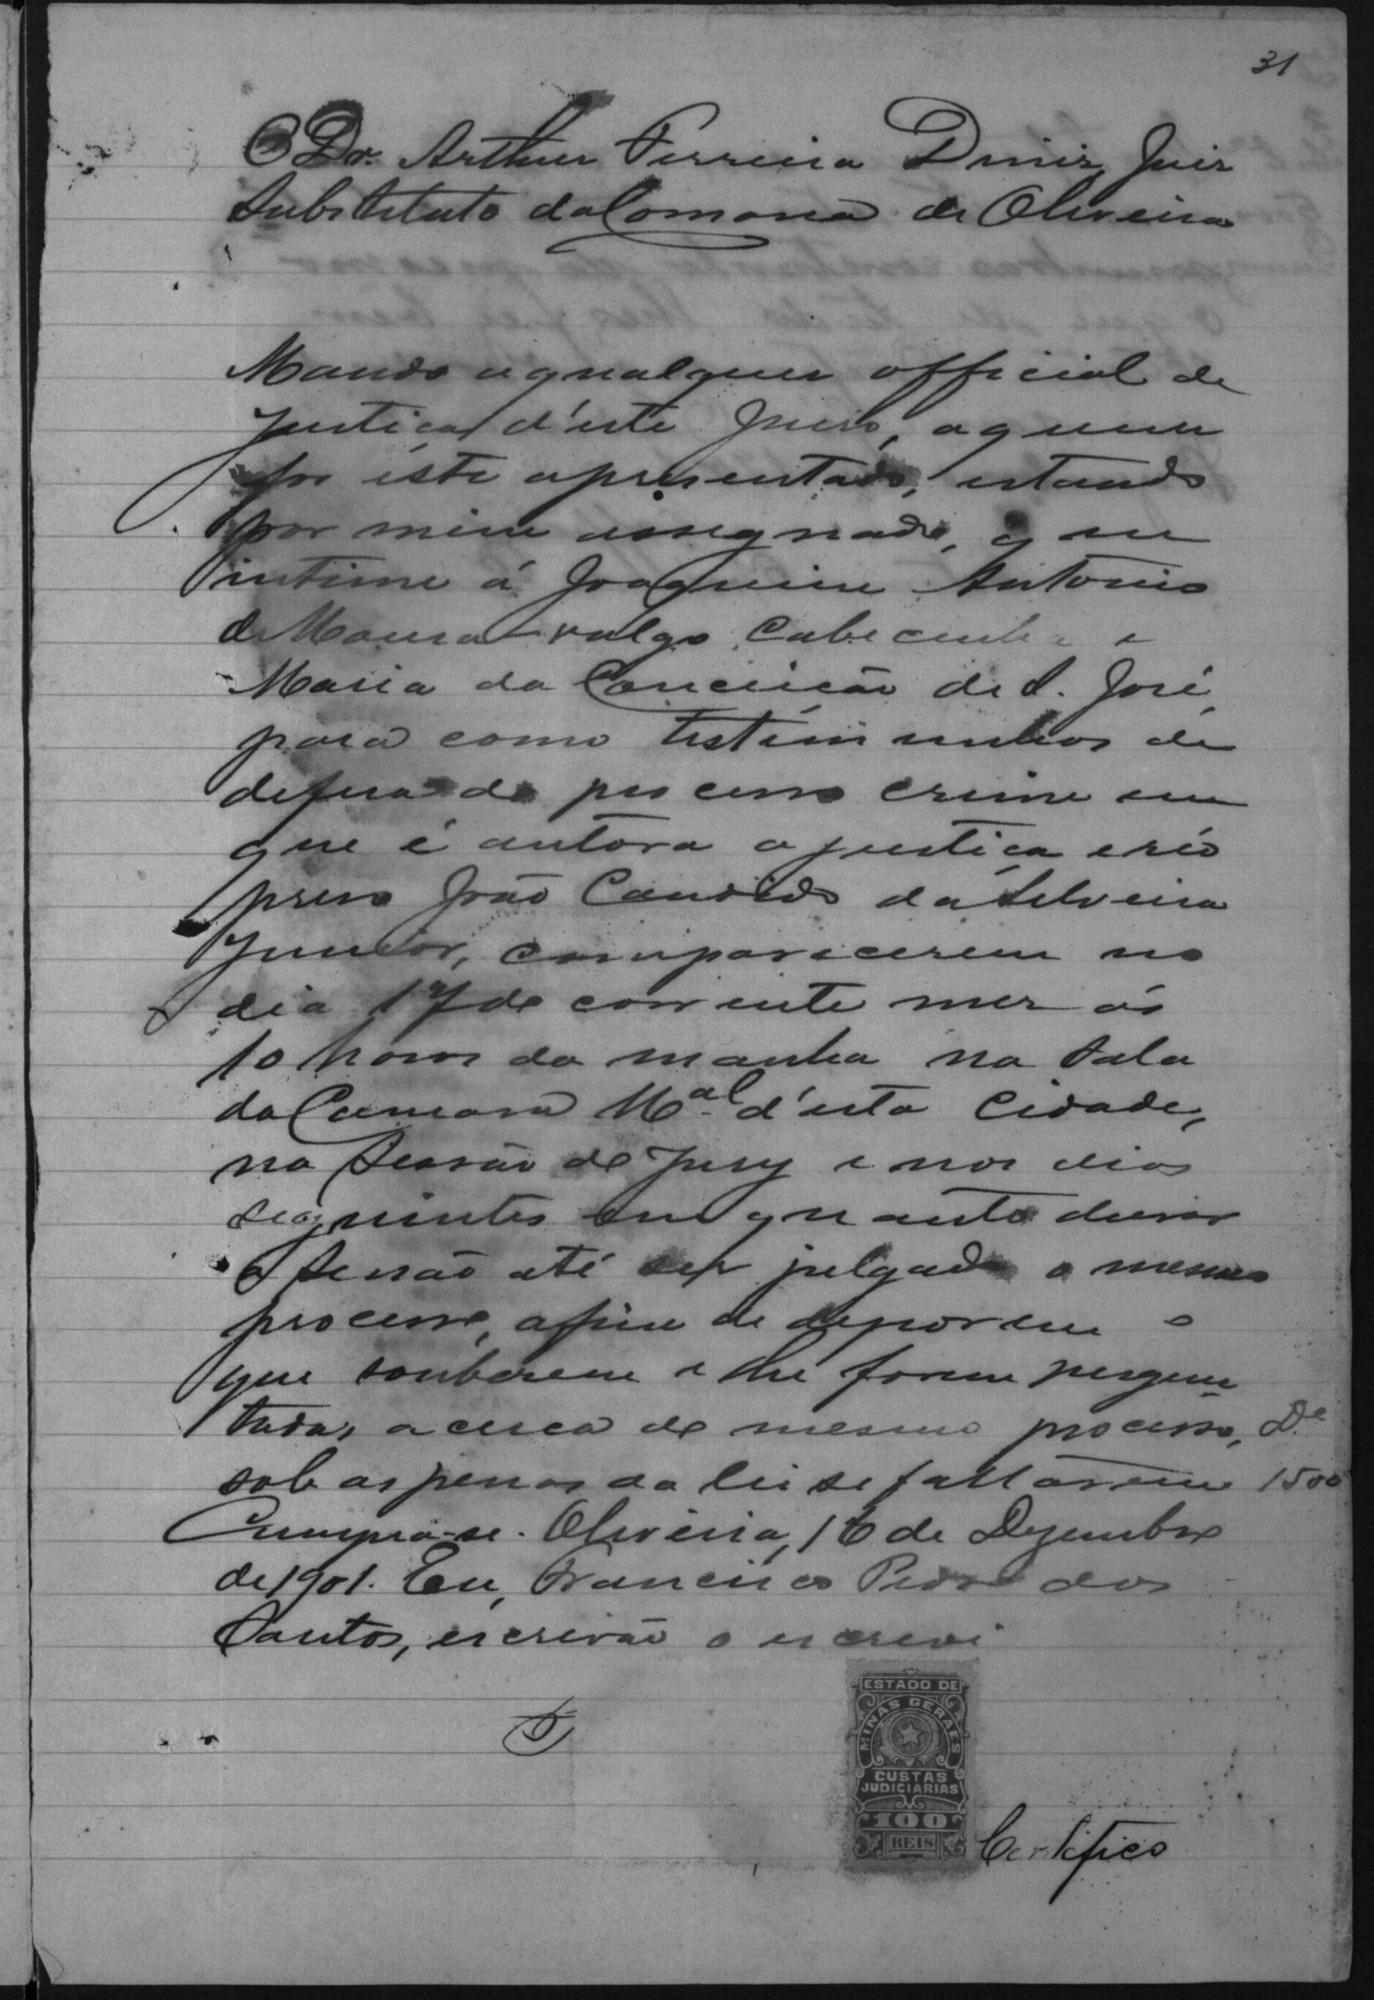 31
O Dr. Arthur Ferreira Diniz, Juiz
Substituto da Comarca de Oliveira
Mando a qualquer official de
justiça d'este Juizo, a quem
for éste apresentado, estando
por mim assegnado, que
intime á Joaquim Antonio
de Moura vulgo Cabecinha e
Maria da Conceicão de S. José,
para como testimunhas de
defesa do processo crime em
que é autora a justiça e réo
preso João Candido da Silveira
Junior, comparecerem no
dia 17 do corrente mez ás
10 horas da manha na Sala
da Camara Mal. d'esta Cidade,
na Sessão do Jury e nos dias
seguintes emquanto durar
a Sessão até ser julgado o mesmo
processo, afim de deporem o
que souberem e lhe forem pergun
tadas acerca do mesmo processo, De
sob as penas da lei se faltarem 1500
Cumpra-se. Oliveira, 16 de Dezembro
de 1901. Eu, Francisco Pedro dos
Santos, escrivão o escrevi
ESTADO DE
MINAS GERAES
CUSTAS
JUDICIARIAS
100
REIS
Certifico